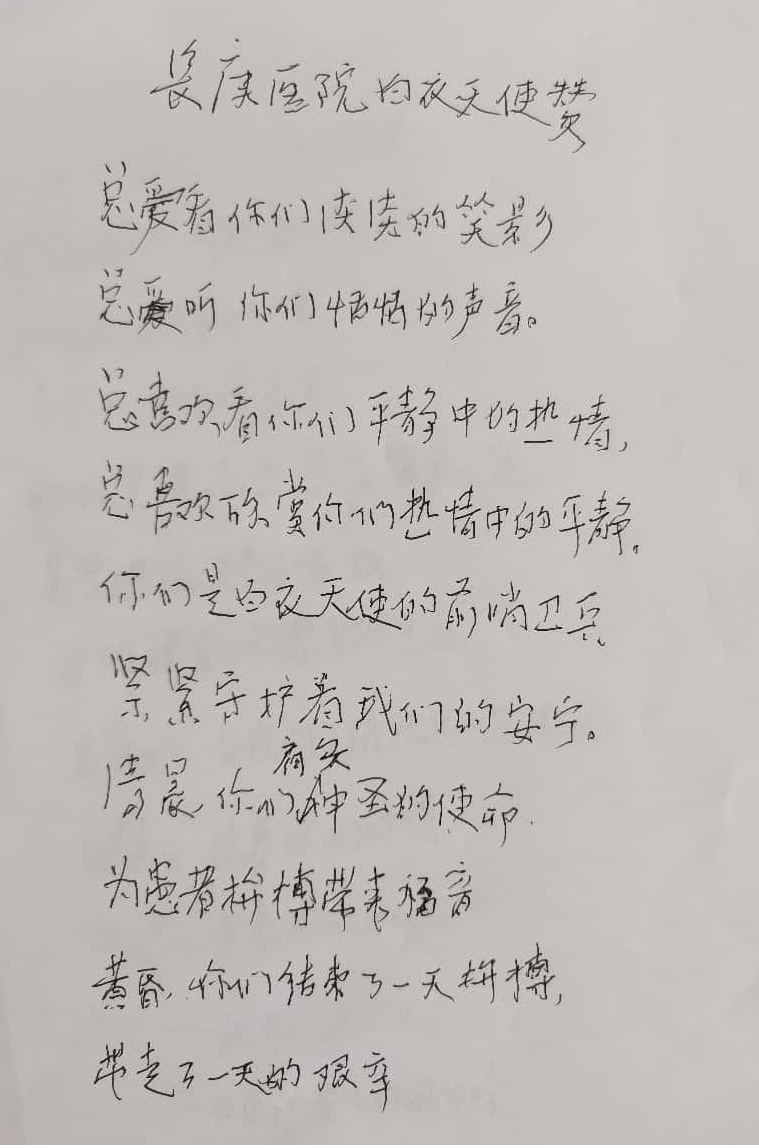 长庚医院白衣天使赞
总爱看你们淡淡的笑影
总爱听你们悄悄的声音。
总喜欢看你们平静中的热情,
总喜欢欣赏你们热情中的平静。
你们是白衣天使的前哨卫兵
紧紧守护着我们的安宁。
清晨,你们肩负神圣的使命.
为患者拚搏带来福音
黄昏,你们结束了一天拼搏,
带走了一天的艰辛